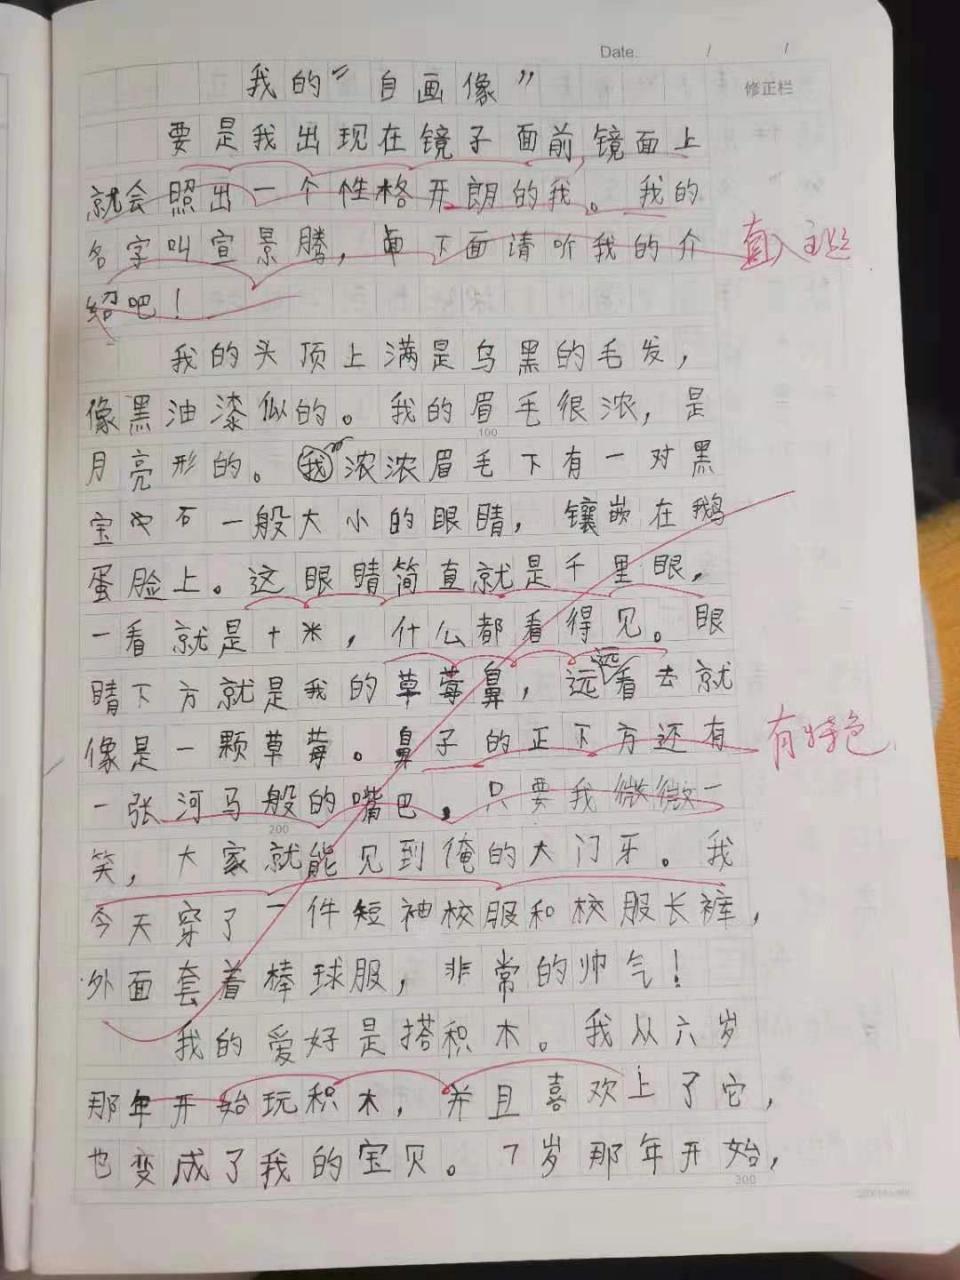 Date. / /
修正栏
我的“自画像”
要是我出现在镜子面前,镜面上
就会照出一个性格开朗的我。我的
名字叫宣景腾,下面请听我的介
绍吧!
直入主题
我的头顶上满是乌黑的毛发,
像黑油漆似的。我的眉毛很浓,是
100
月亮形的。我浓浓眉毛下有一对黑
宝石一般大小的眼睛,镶嵌在鹅
蛋脸上。这眼睛简直就是千里眼,
一看就是十米,什么都看得见。眼
睛下方就是我的草莓鼻,远远看去就
像是一颗草莓。鼻子的正下方还有
有特色
一张河马般的嘴巴,只要我微微一
200
笑,大家就能见到俺的大门牙。我
今天穿了一件短袖校服和校服长裤,
外面套着棒球服,非常的帅气!
我的爱好是搭积木。我从六岁
那年开始玩积木,并且喜欢上了它,
也变成了我的宝贝。7岁那年开始,
300